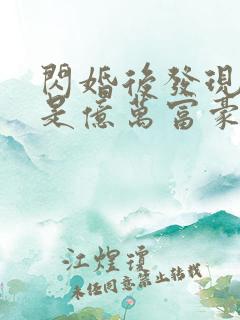 閃婚後發現
是億萬富豪
江煌瓊
未任同意禁止转载